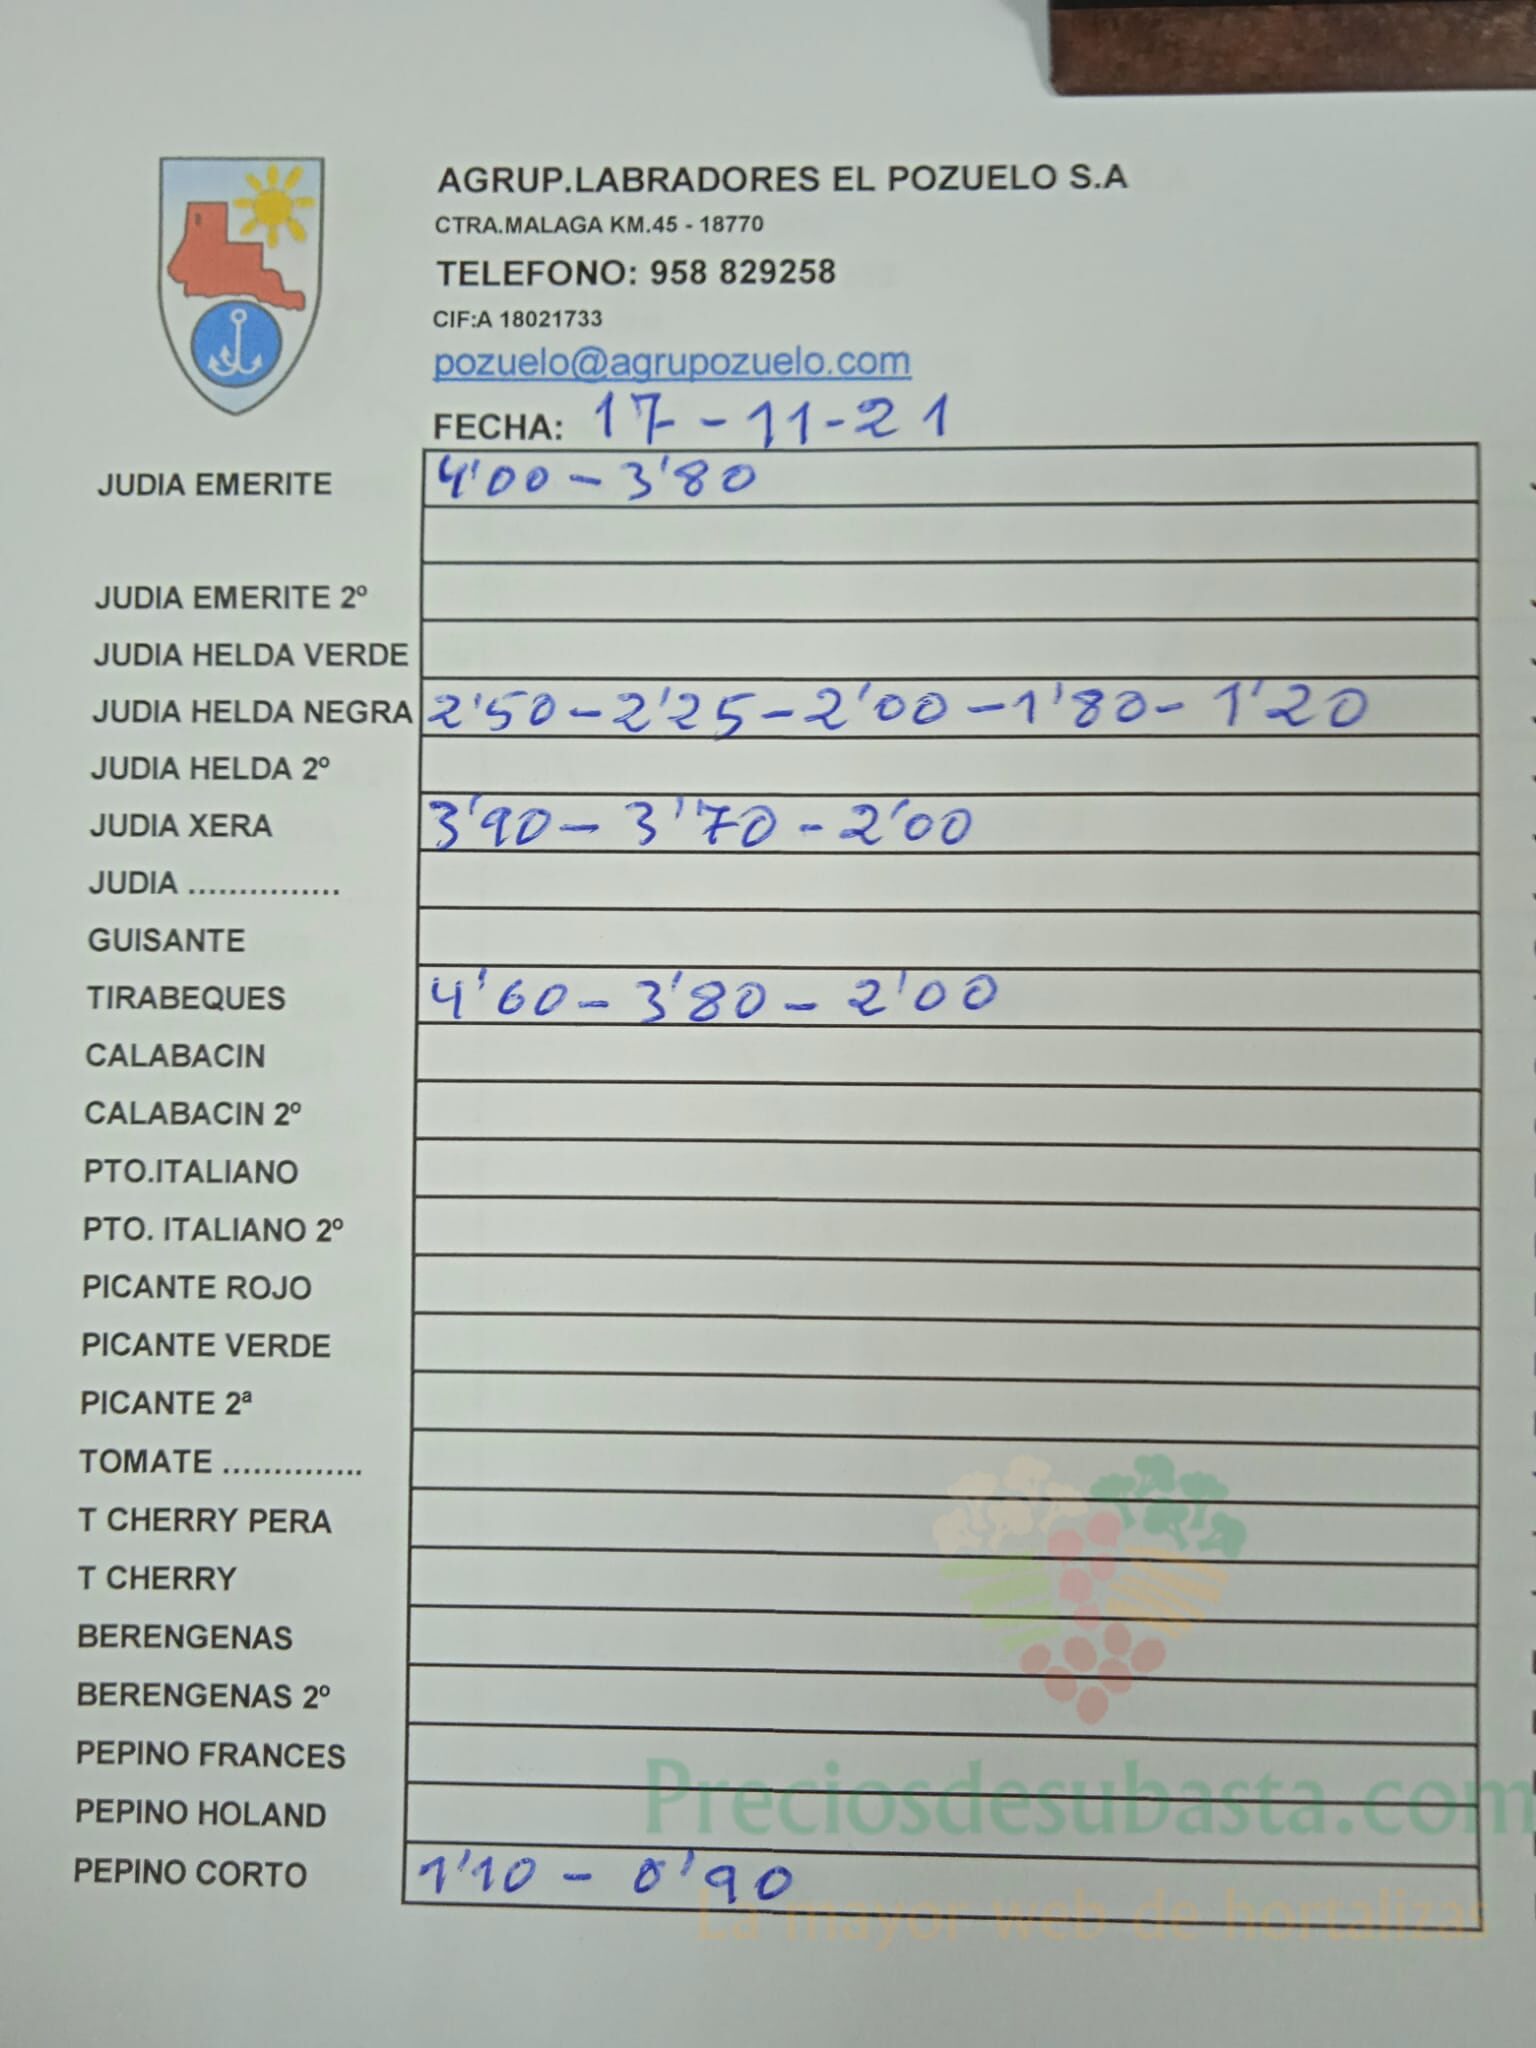 AGRUP.LABRADORES EL POZUELO S.A
CTRA.MALAGA KM.45 - 18770
TELEFONO: 958 829258
CIF:A 18021733
pozuelo@agrupozuelo.com
FECHA: 17-11-21
JUDIA EMERITE 4'00 - 3'80
JUDIA EMERITE 2º
JUDIA HELDA VERDE
JUDIA HELDA NEGRA 2'50 - 2'25 - 2'00 - 1'80 - 1'20
JUDIA HELDA 2º
JUDIA XERA 3'90 - 3'70 - 2'00
JUDIA ...............
GUISANTE
TIRABEQUES 4'60 - 3'80 - 2'00
CALABACIN
CALABACIN 2º
PTO.ITALIANO
PTO. ITALIANO 2º
PICANTE ROJO
PICANTE VERDE
PICANTE 2ª
TOMATE ..............
T CHERRY PERA
T CHERRY
BERENGENAS
BERENGENAS 2º
PEPINO FRANCES
PEPINO HOLAND
Preciosdesubasta.com
PEPINO CORTO 1'10 - 0'90
La mayor web de hortalizas